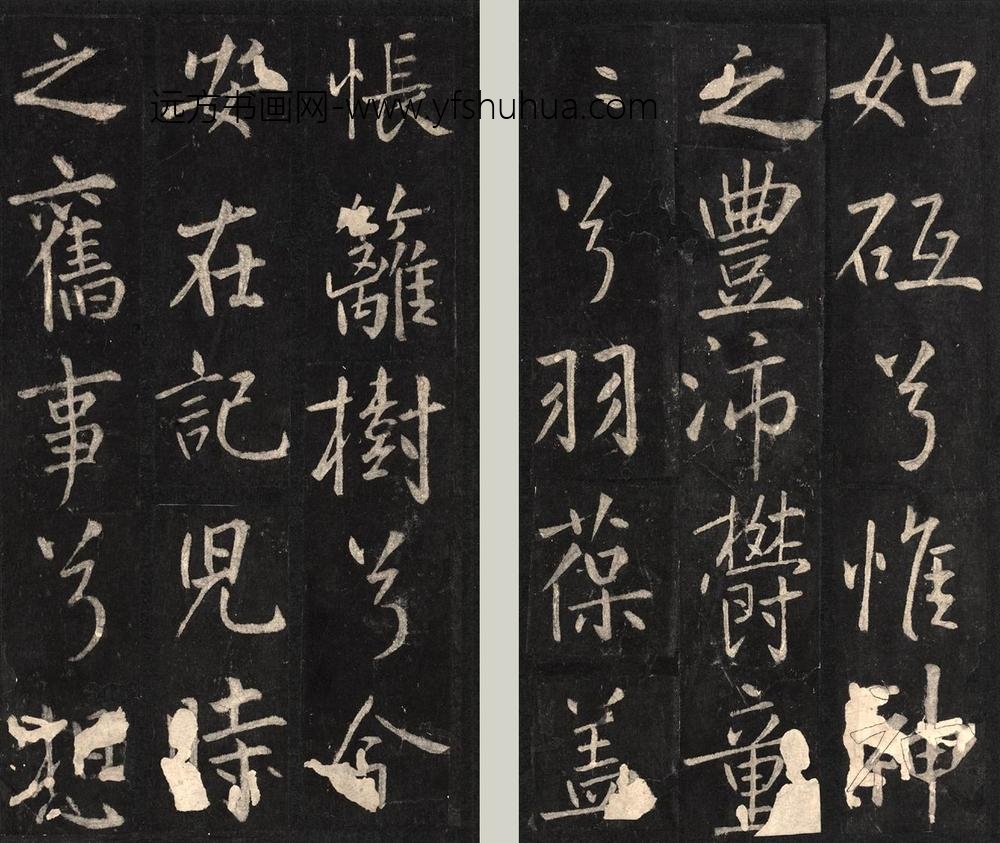 如砥兮惟神
之豐沛鬱童
〻兮羽葆盖
悵籬樹兮今
安在記兒時
之舊事兮想
远方书画网-www.yfshuhua.com